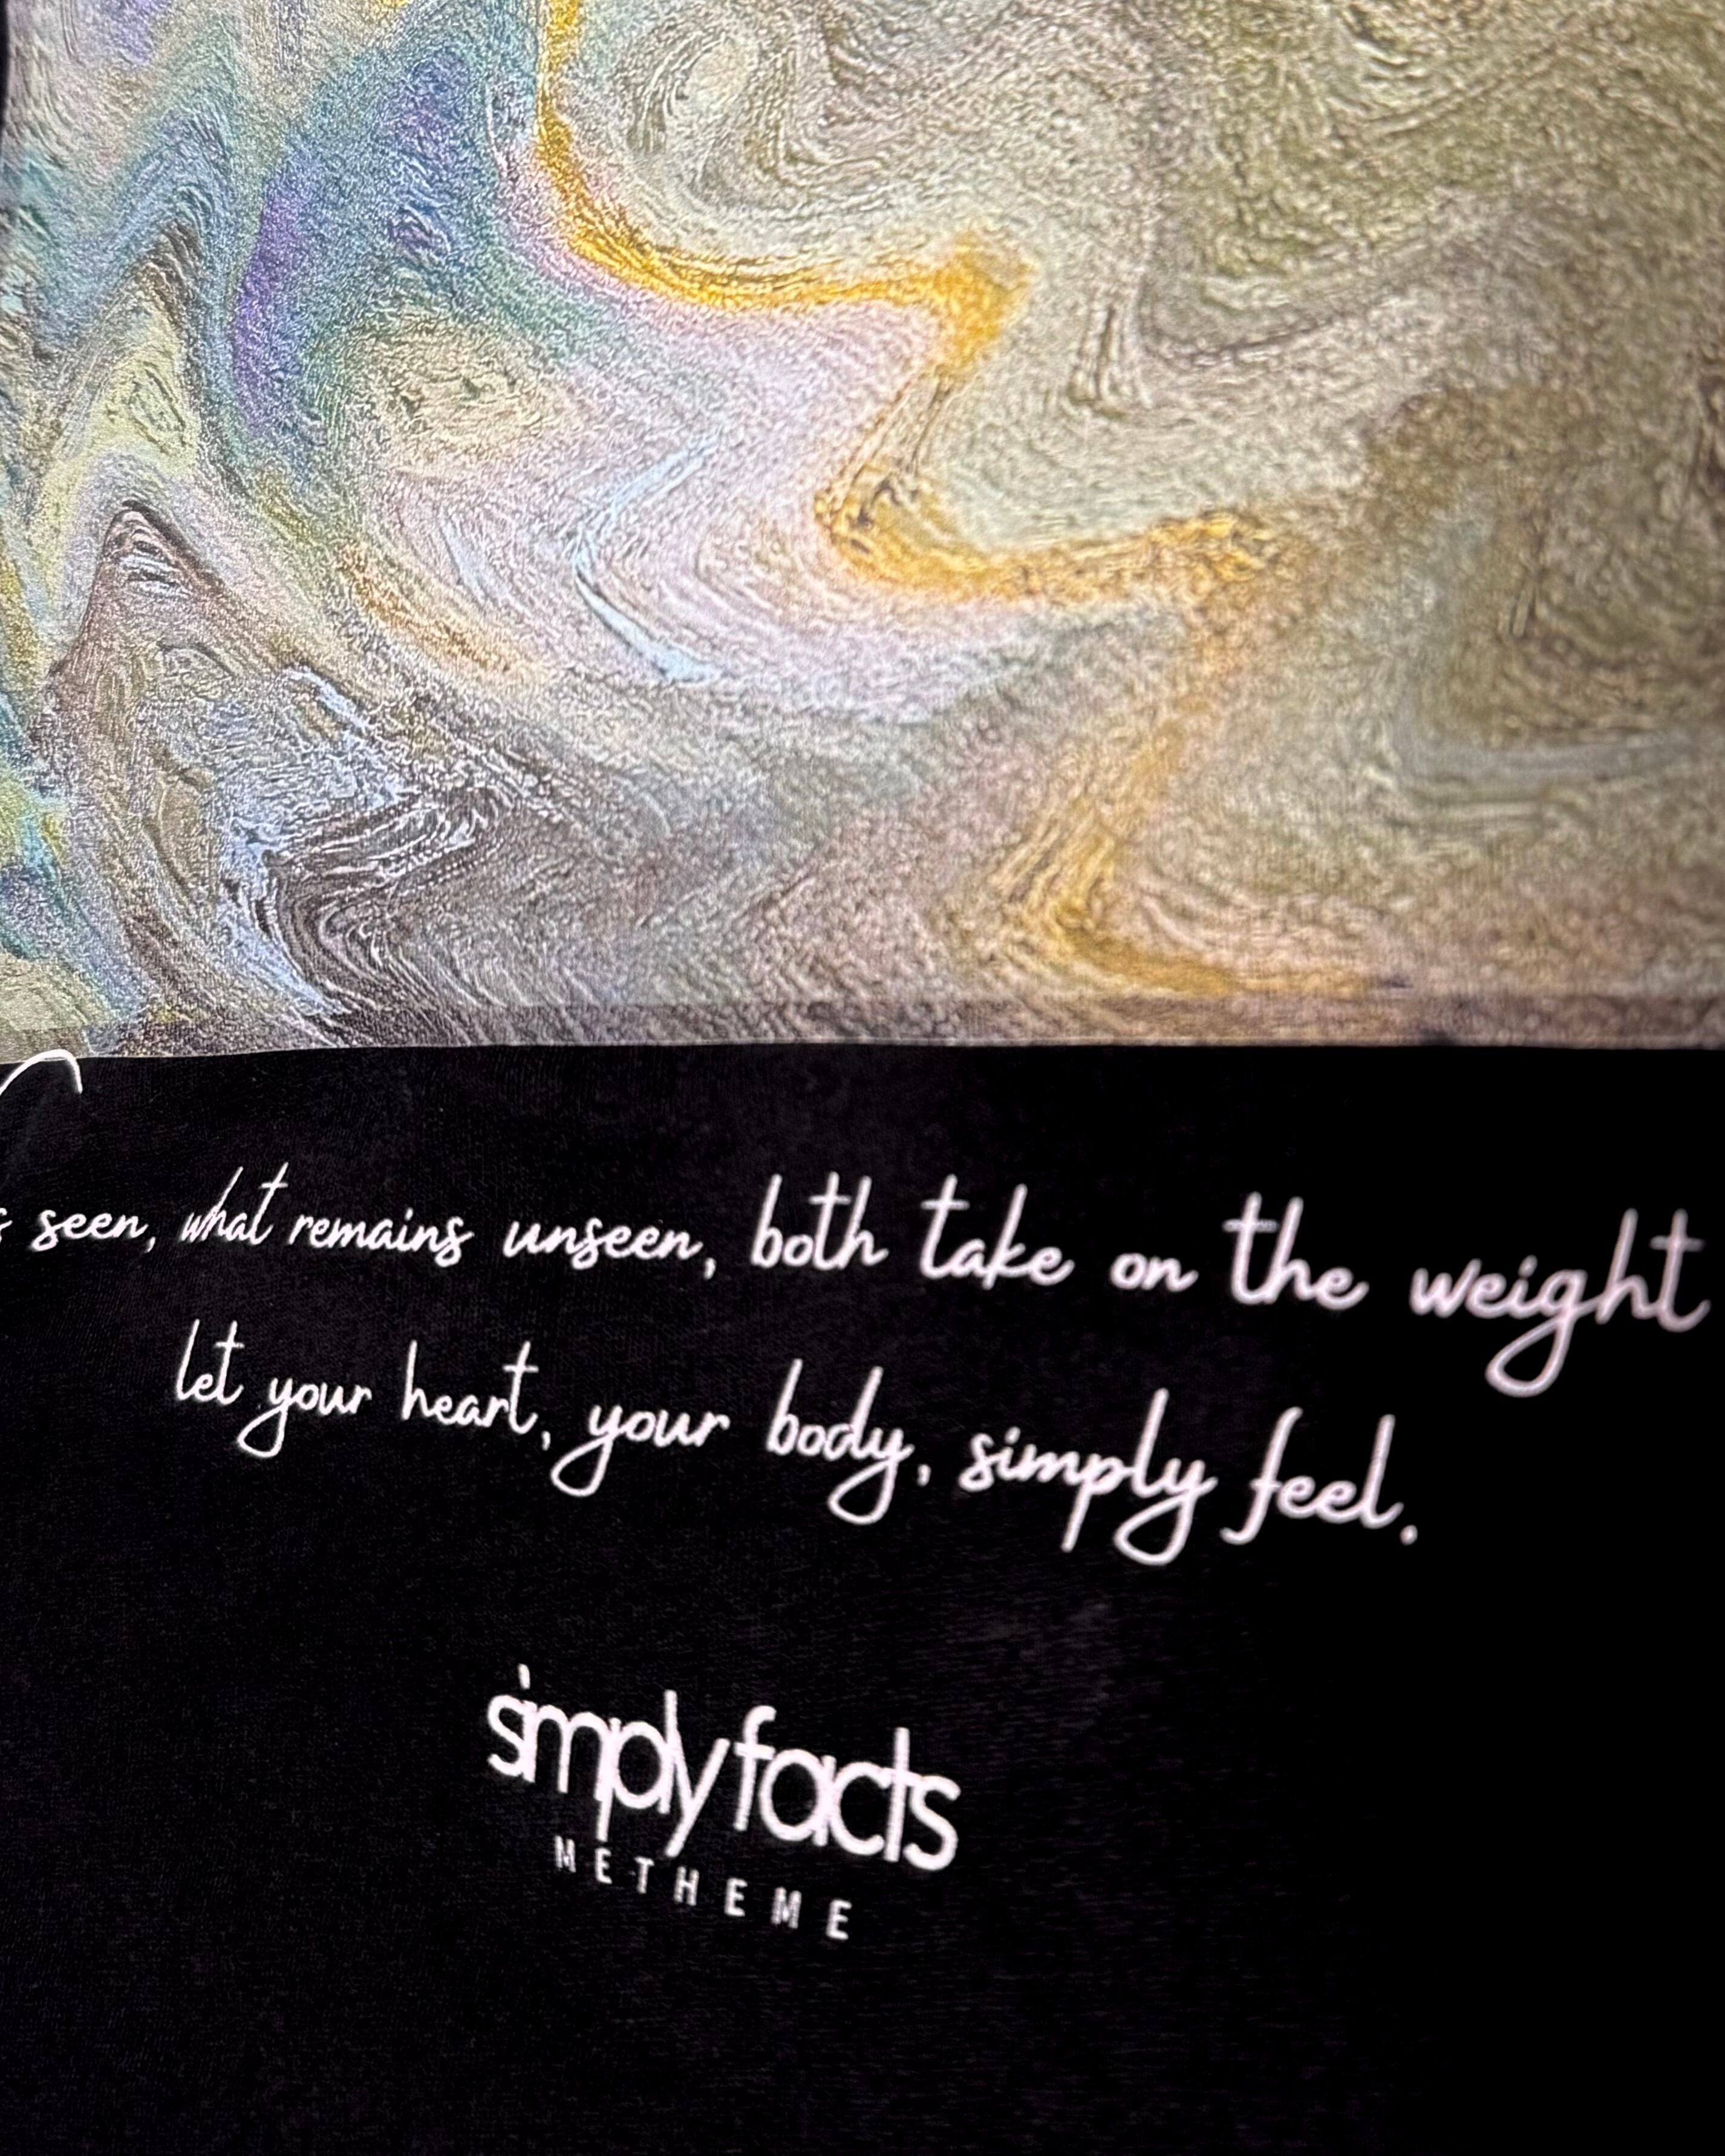 seen, what remains unseen, both take on the weight
let your heart, your body, simply feel.
simply facts
METHEME